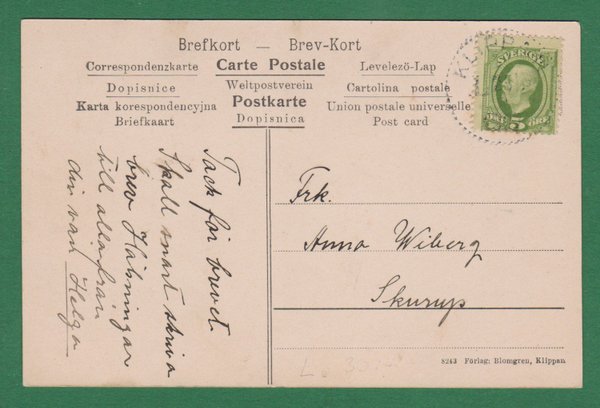 Brefkort — Brev-Kort
Correspondenzkarte Carte Postale Levelezö-Lap
Dopisnice Weltpostverein Cartolina postale
Karta korespondencyjna Postkarte Union postale universelle
Briefkaart Dopisnica Post card
SVERIGE
5 ÖRE
Tack för brevet
Skall snart skriva
brev Hälsningar
till alla från
din vän Helga
Frk.
Anna Wiberg
Skurup
8243 Förlag: Blomgren, Klippan